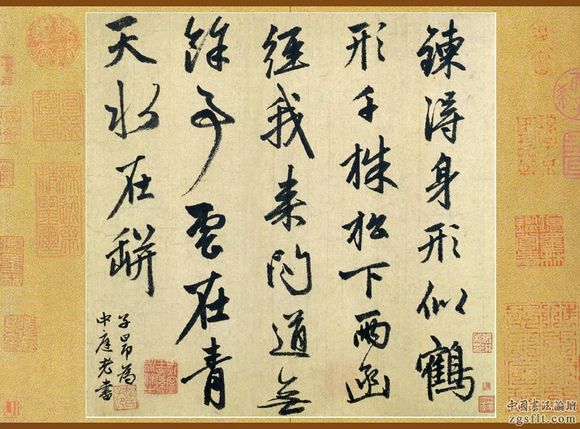 鍊得身形似鶴
形千株松下兩函
經我來問道無
餘事雲在青
天水在缾
子昂為
中庭老書
中國書法論壇
zgsflt.com